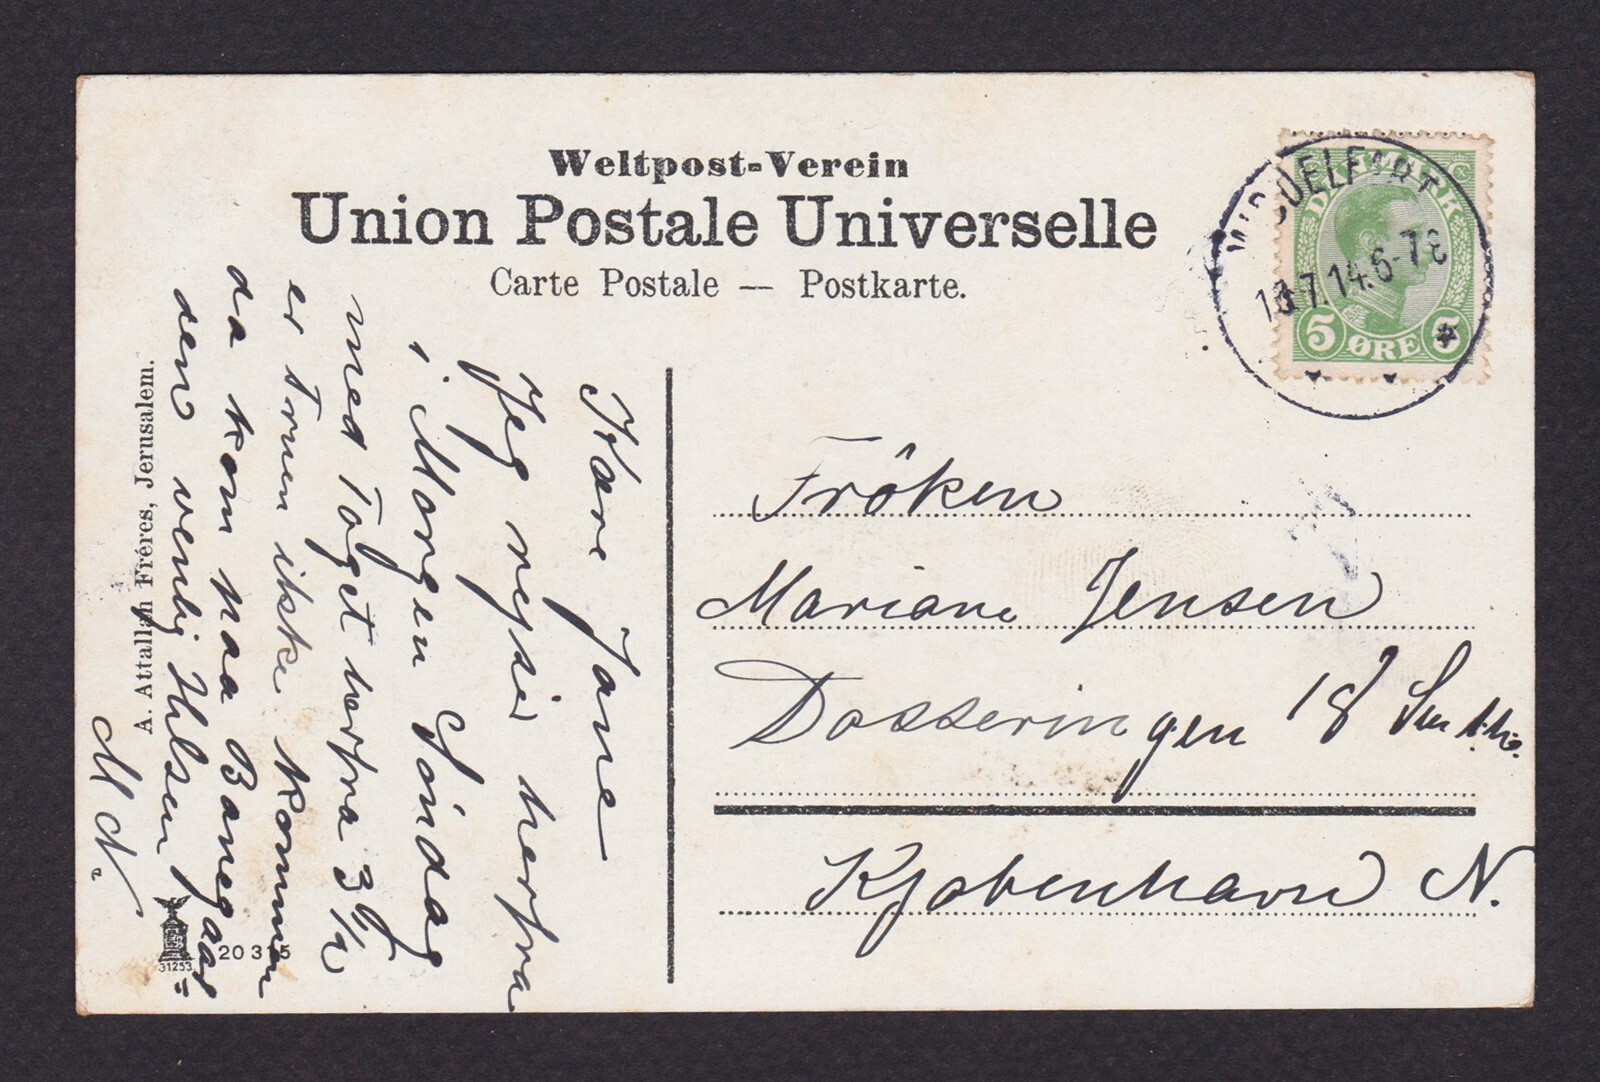 Weltpost-Verein
Union Postale Universelle
Carte Postale — Postkarte.
DANMARK
5 ØRE 5
MIDDELFART
7.14.6-7E
Kære Jane
Jeg rejser herfra
i Morgen Söndag
med Toget herfra 3 1/2
er Tonen ikke kommen
da kom paa Banegaar=
den venlig Hilsen
M N.
A. Attallah Fréres, Jerusalem.
31253
20 315
Fröken
Mariane Jensen
Dosseringen 18
Kjøbenhavn N.